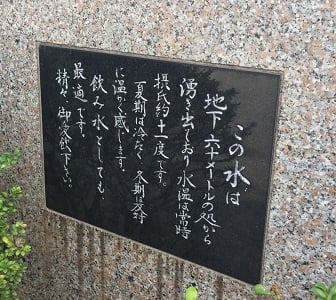 この水は
地下六十メートルの処から
湧き出ており水温は常時
摂氏約十一度です。
夏期は冷たく冬期は反対
に温かく感じます。
飲み水としても、
最適です。
精々御愛飲下さい。